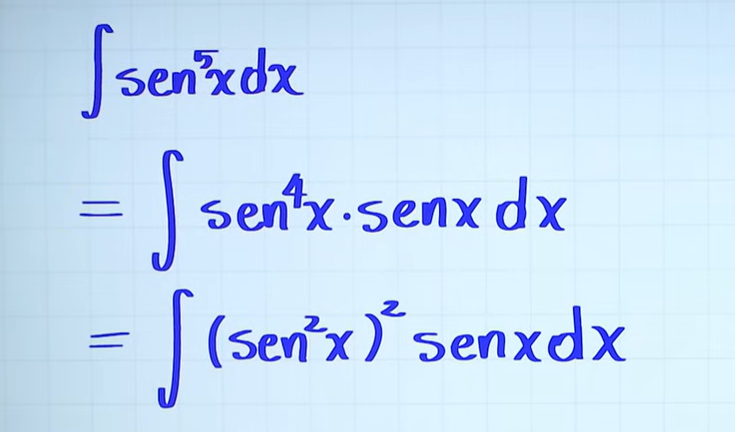 ∫sen⁵xdx
= ∫ sen⁴x·senx dx
= ∫ (sen²x)² senxdx